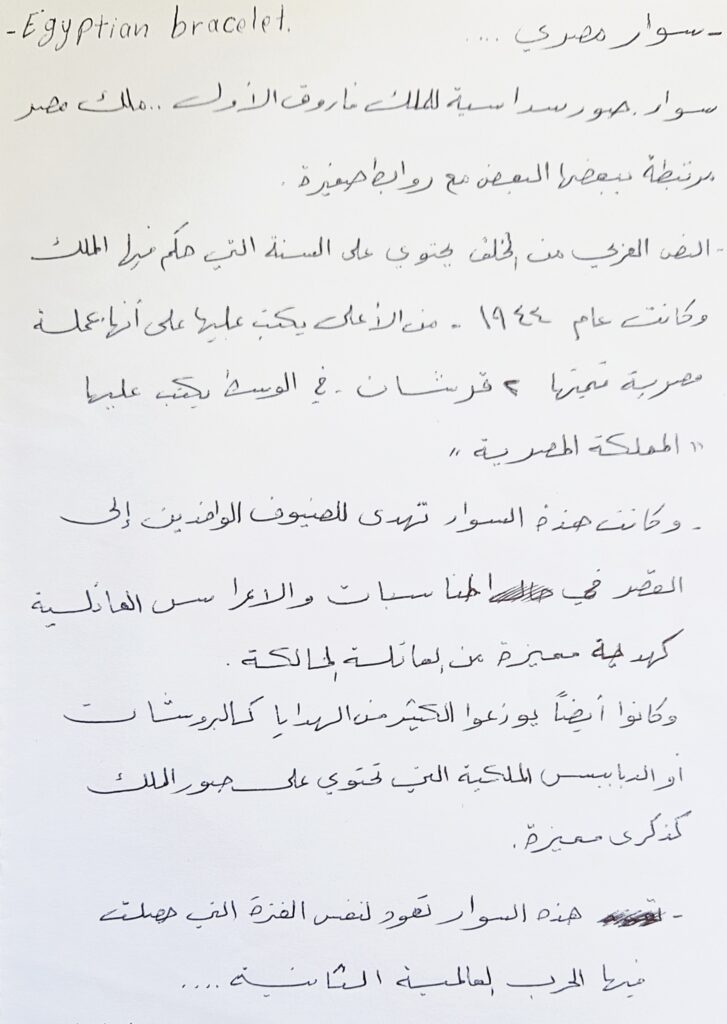 - Egyptian bracelet.
- سوار مصري ....
سوار . صور سداسية للملك فاروق الأول .. ملك مصر
مرتبطة ببعضها البعض مع روابط صغيرة .
- النص العربي من الخلف يحتوي على السنة التي حكم فيها الملك
وكانت عام ١٩٤٤ - من الأعلى يكتب عليها على أنها عملة
مصرية قيمتها ٢ قرشان - في الوسط يكتب عليها
" المملكة المصرية "
- وكانت هذه السوار تهدى للضيوف الوافدين إلى
القصر في المناسبات والاعراس العائلية
كهدية مميزة من العائلة المالكة .
وكانوا أيضاً يوزعوا الكثير من الهدايا كالبروشات
أو الدبابيس الملكية التي تحتوي على صور الملك
كذكرى مميزة .
- هذه السوار تعود لنفس الفترة التي حصلت
فيها الحرب العالمية الثانية ....